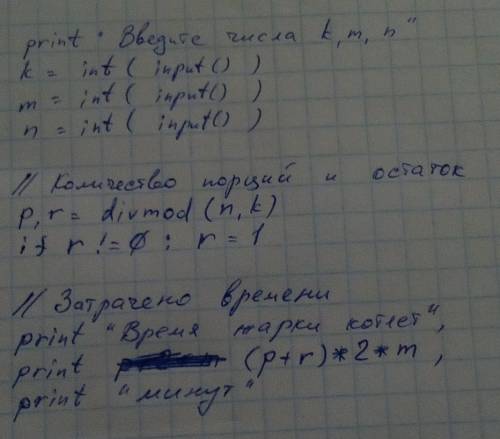 print " Введите числа k, m, n"
k = int ( input() )
m = int ( input() )
n = int ( input() )
// Количество порций и остаток
p, r = divmod (n, k)
if r != 0 : r = 1
// Затрачено времени
print "Время жарки котлет",
print (p+r)*2*m ,
print "минут"